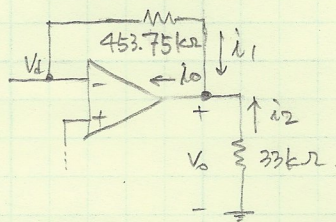 453.75kΩ
i₁
Vd
-
← i₀
+
+
i₂
V₀
33kΩ
-